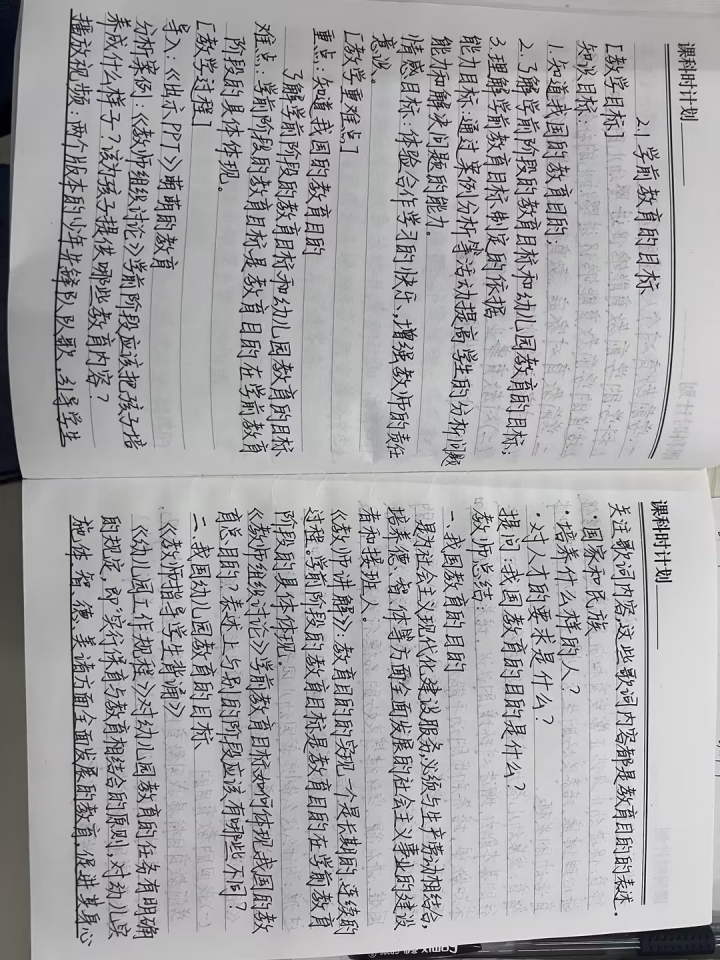 课科时计划
2.1 学前教育的目标
[教学目标]
知识目标:
1.知道我国的教育目的;
2.了解学前阶段的教育目标和幼儿园教育的目标;
3.理解学前教育目标制定的依据
能力目标:通过案例分析等活动提高学生的分析问题
能力和解决问题的能力。
情感目标:体验合作学习的快乐、增强教师的责任
意识。
[教学重难点]
重点:知道我国的教育目的
了解学前阶段的教育目标和幼儿园教育的目标
难点:学前阶段的教育目标是教育目的在学前教育
阶段的具体体现。
[教学过程]
导入:《出示PPT》萌萌的教育
分析案例:《教师组织讨论》学前阶段应该把孩子培
养成什么样子?该为孩子提供哪些教育内容?
播放视频:两个版本的少年先锋队队歌,引导学生
课科时计划
关注歌词内容,这些歌词内容都是教育目的的表述。
·国家和民族
·培养什么样的人?
·对人才的要求是什么?
提问:我国教育的目的是什么?
教师总结:
一、我国教育的目的
是为社会主义现代化建设服务,必须与生产劳动相结合,
培养德、智、体等方面全面发展的社会主义事业的建设
者和接班人。
《教师讲解》:教育目的的实现一个是长期的、连续的
过程。学前阶段的教育目标是教育目的在学前教育
阶段的具体体现。
《教师组织讨论》学前教育目标如何体现我国的教
育总目的?表述上与别的阶段应该有哪些不同?
二、我国幼儿园教育的目标
《教师指导学生背诵》
《幼儿园工作规程》对幼儿园教育的任务有明确
的规定,即“实行保育与教育相结合的原则,对幼儿实
施体、智、德、美诸方面全面发展的教育,促进其身心
Comix